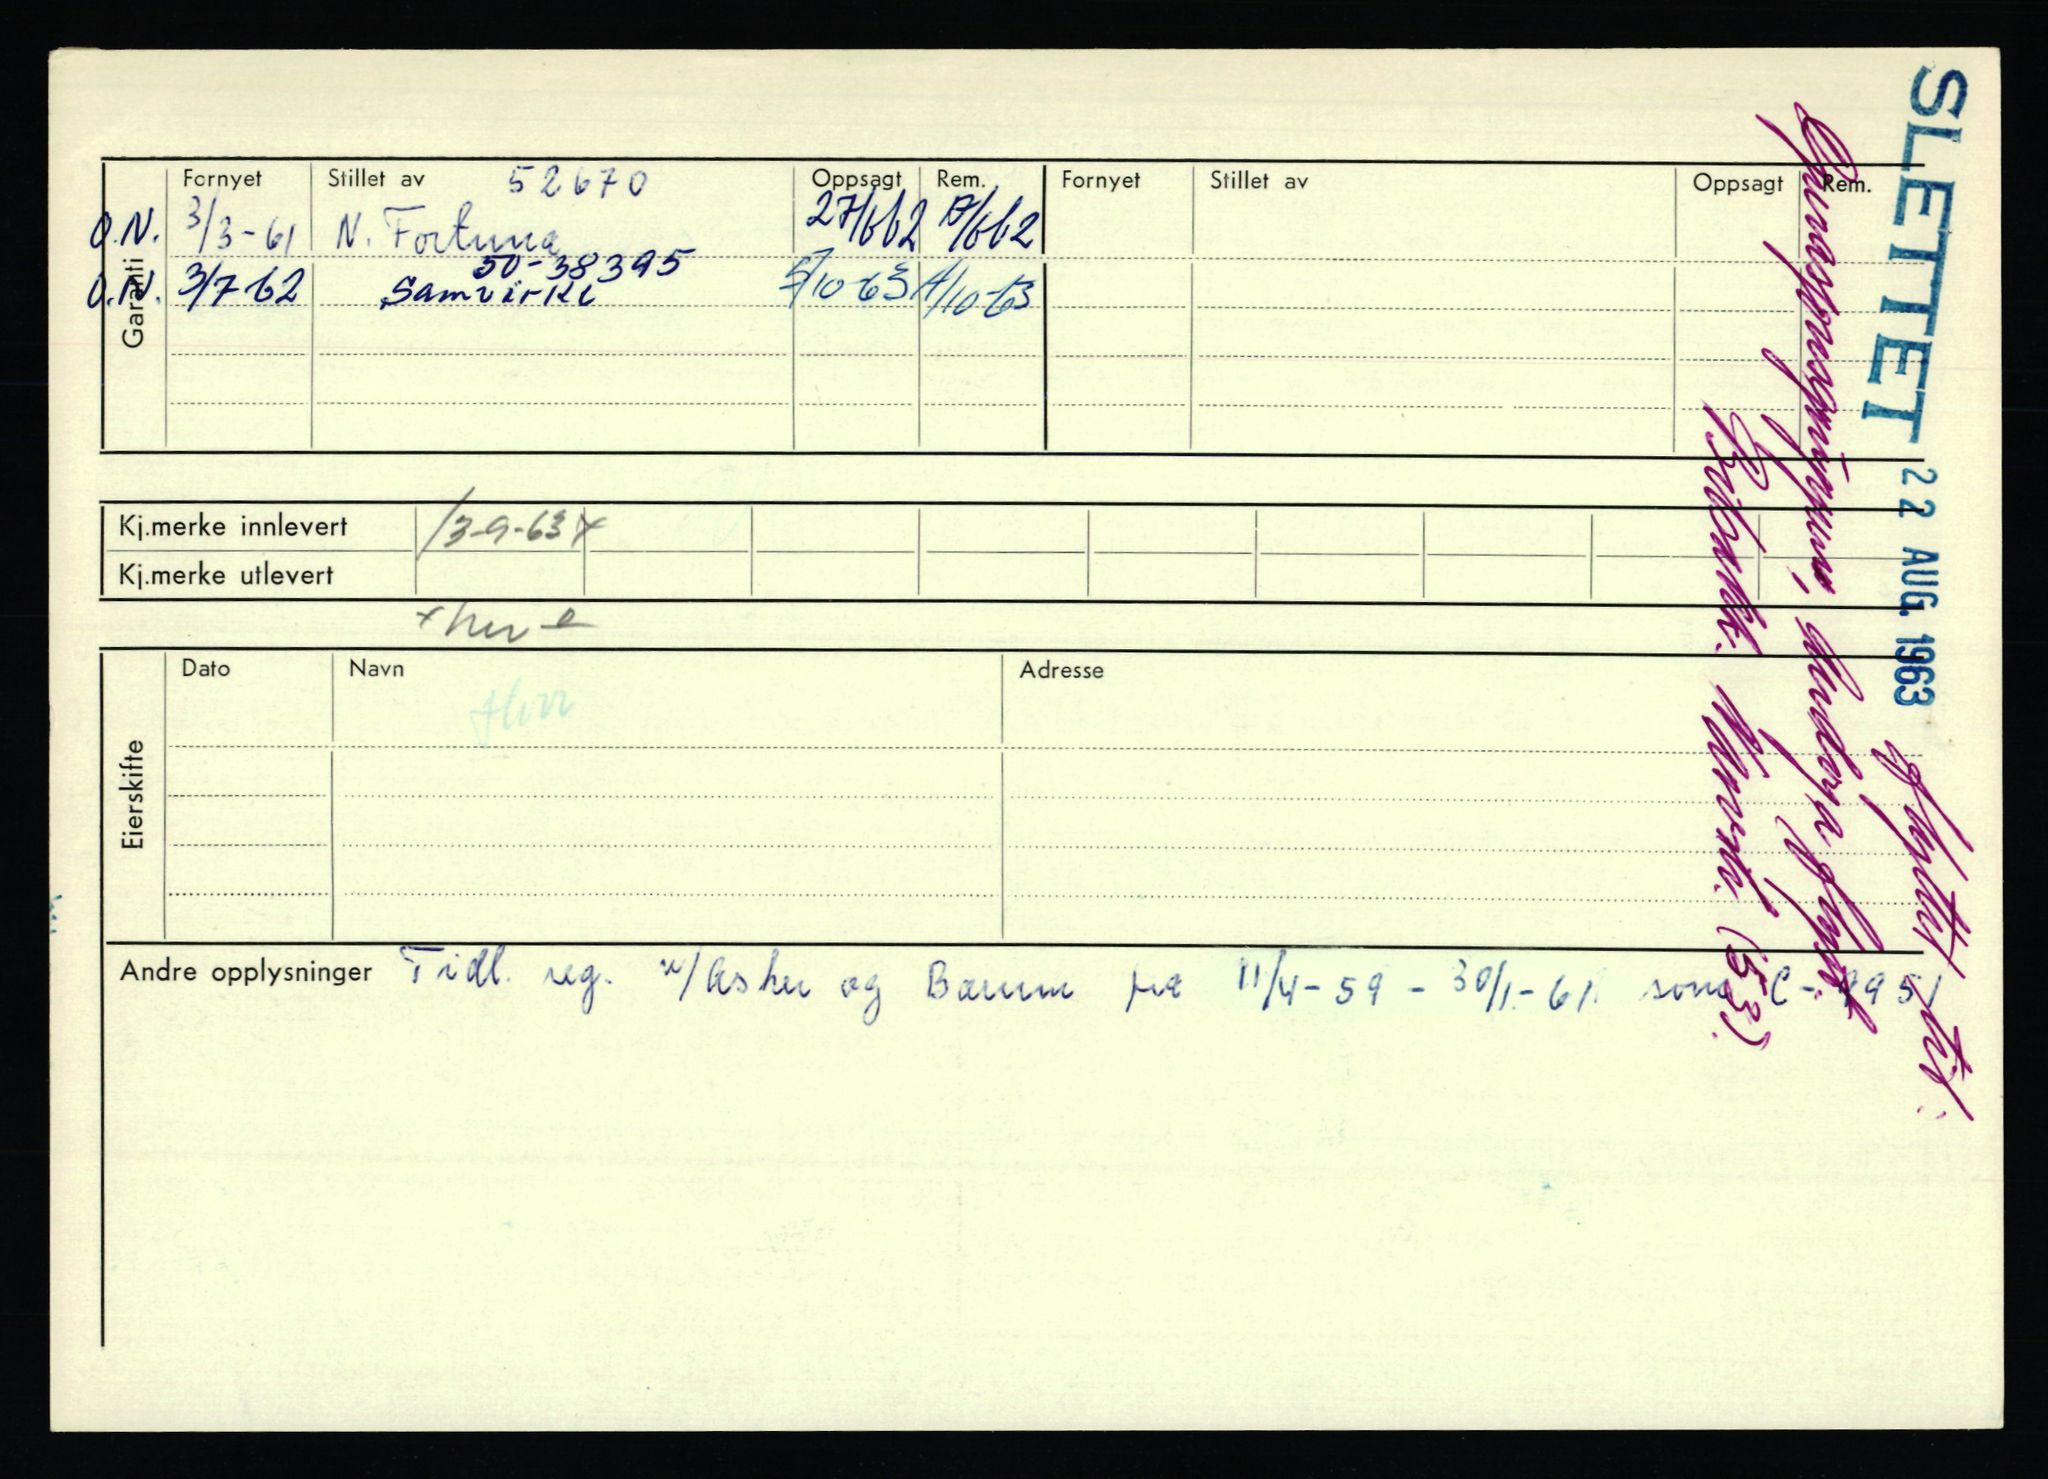 Garanti
Fornyet Stillet av 52670 Oppsagt Rem. Fornyet Stillet av Oppsagt Rem.
O.N. 3/3-61 N. Fortuna 27/662 17/662
50-38395
O.N. 3/7-62 Samvirke 5/10-63 1/10-63
Kj.merke innlevert 13-9-63 x
Kj.merke utlevert
Eierskifte
Dato Navn Adresse
Andre opplysninger Tidl. reg. v/Asker og Bærum fra 11/4-59 - 30/1-61 som C-
SLETTET 22 AUG. 1963
Flyttet til:
(53).